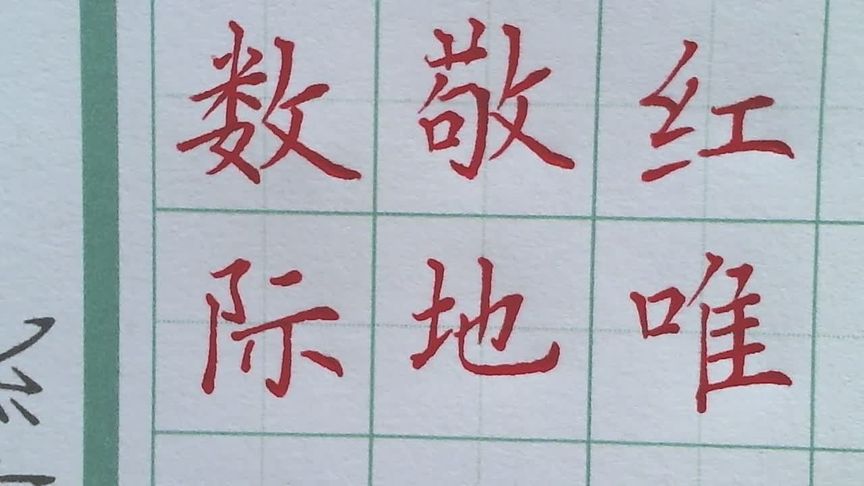 数敬红
际地唯